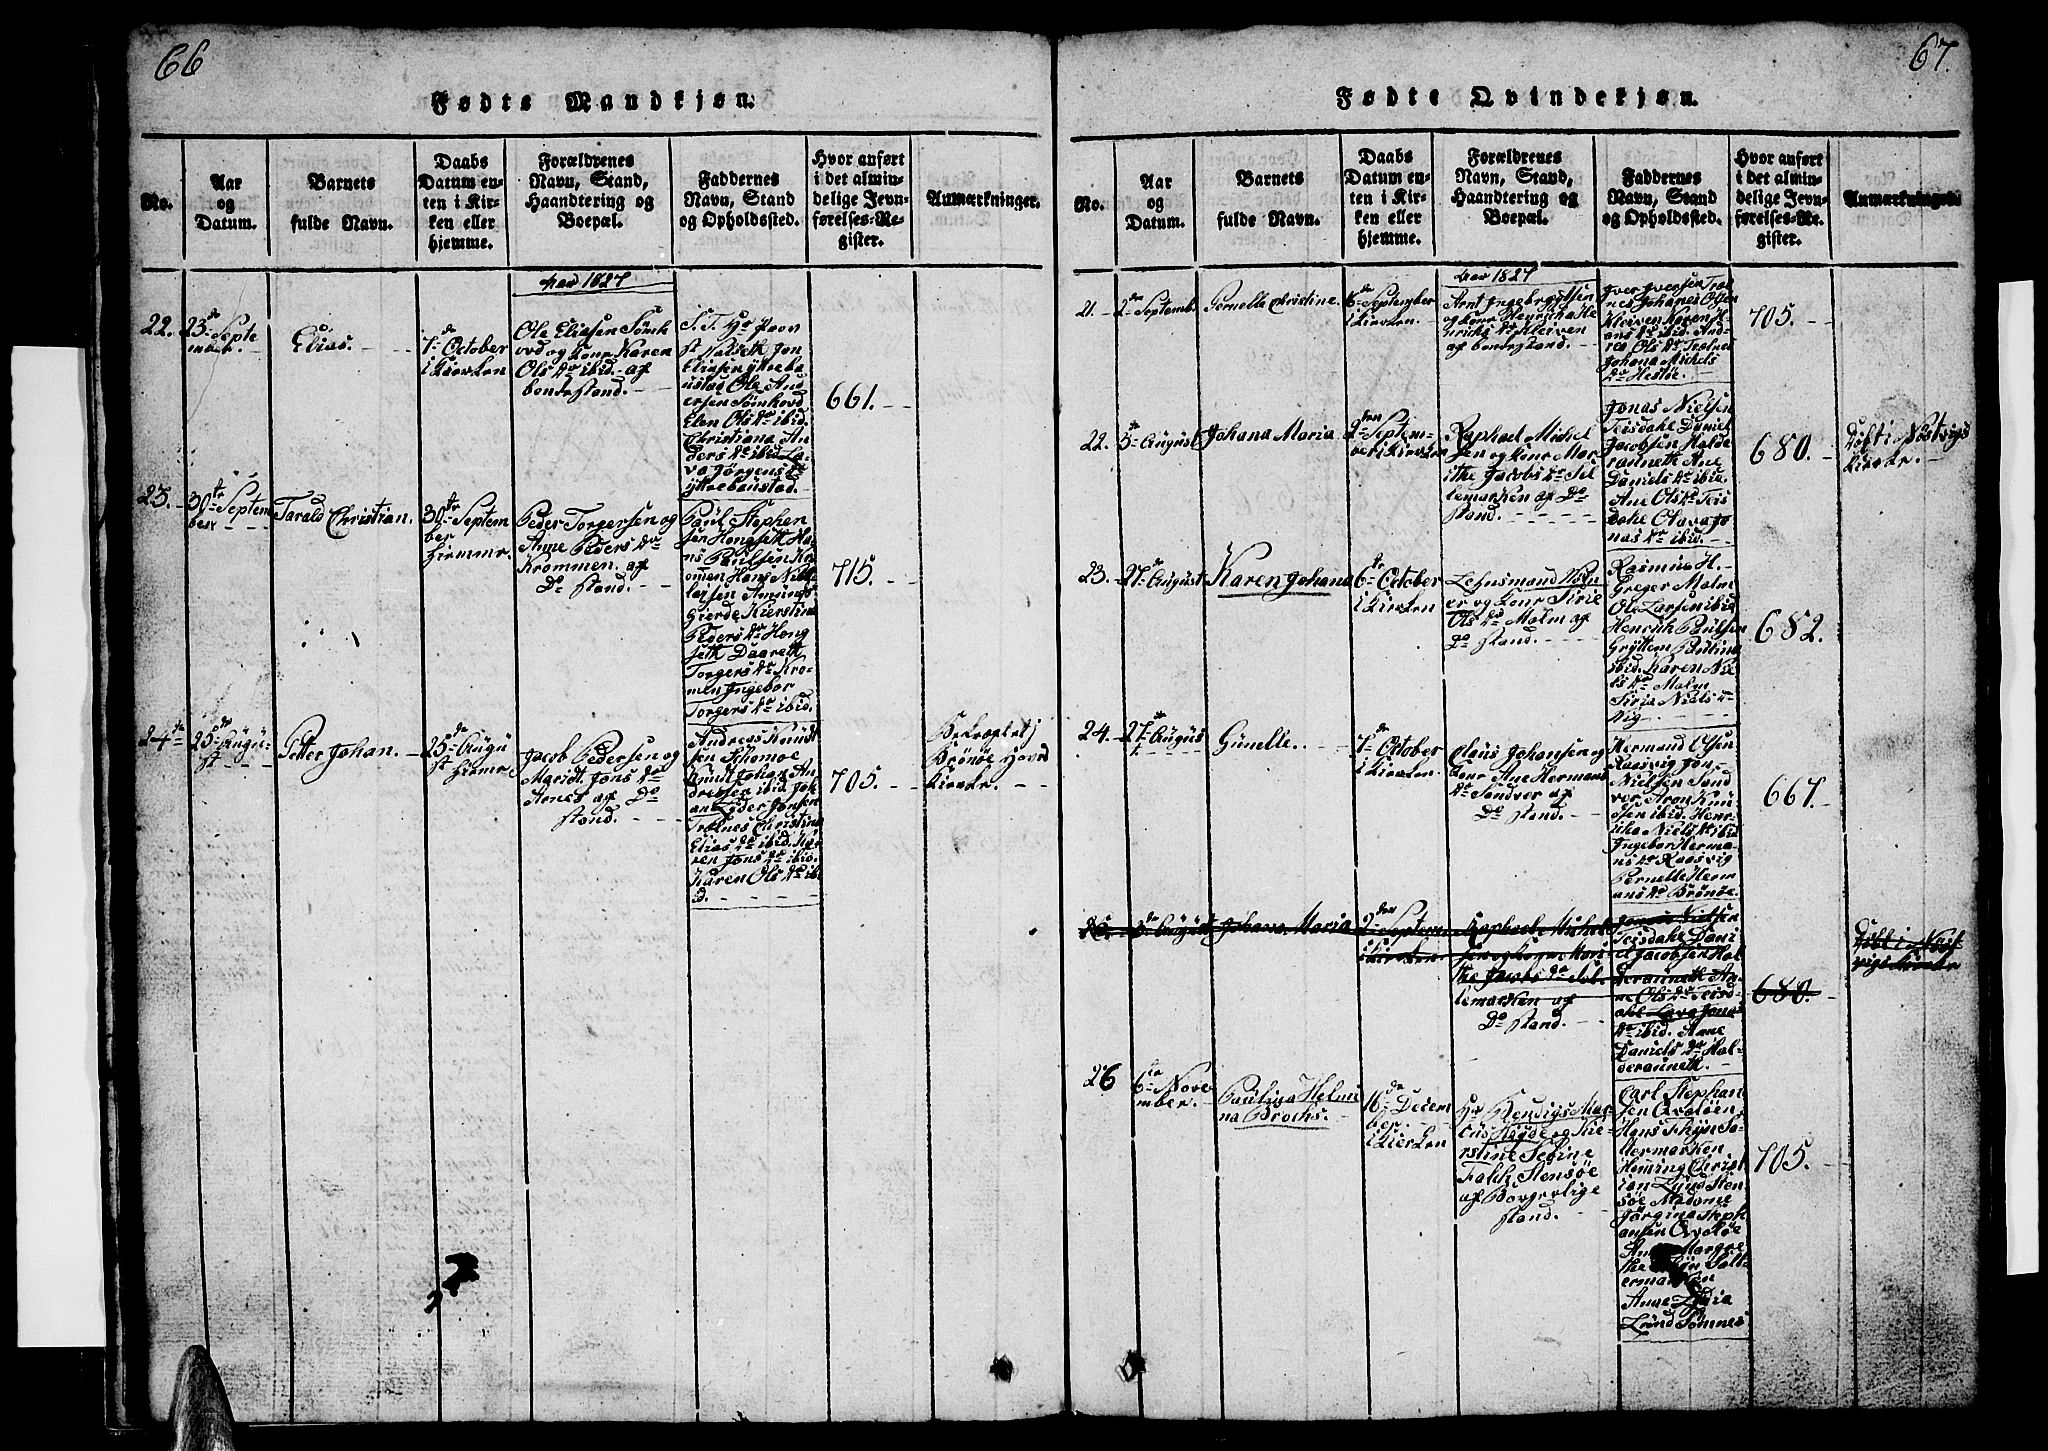 66
Fødte Mandkjøn.
No.
Aar
og
Datum.
Barnets
fulde Navn.
Daabs
Datum en-
ten i Kir-
ken eller
hjemme.
Forældrenes
Navn, Stand,
Haandtering og
Boepæl.
Faddernes
Navn, Stand
og Opholdssted.
Hvor anført
i det almin-
delige Jevn-
førelses-Re-
gister.
Anmærkninger.
Aar 1827
22.
23de Septe
mber.
Elias.
7de October
i Kirken
Ole Eliasen Sömh
ovd og kone Karen
Ols Dr ibid. af
bondestand.
S. T. Hr Prov
st Jon
Eliasen Ytreba
ustad Ole And
ersen Sömhovd
Elen Ols Dr ibid.
Christiana An
ders Dr ibid
Jörgens Dr
Ytrebaustad.
661.
23.
30te Septem
ber
Tarald Christian.
30te Septem
ber
hiemme.
Peder Torgersen og
Anne Peders Dr
Krommen. af
Do stand.
Paul Stephen
sen Hongseth Ha
ns Paulsen Kro
men Hans
Gierde Kierstine
Peders Dr Hong
seth Daareth
Torgers Dr Kro-
men Ingebor
Torgers Dr ibid.
715.
24de
25de Augu-
st
Petter Johan.
25de Augu
st hiemme
Jacob Pedersen og
Marit Jons Dr
Arnes af Do
stand.
Andreas Knudt
sen Tilremoe
Knudt Johan An
dreasen ibid. Joh
an Peder Jonsen
Trælnes Christina
Elias Dr ibid. Ka
ren Jons Dr ibid.
Karen Ols Dr ibi
d.
705.
Bekræftet i
Brönöe Hoved
Kirke.
67.
Fødte Qvindekjøn.
No.
Aar
og
Datum.
Barnets
fulde Navn.
Daabs
Datum en-
ten i Kir-
ken eller
hjemme.
Forældrenes
Navn, Stand,
Haandtering og
Boepæl.
Faddernes
Navn, Stand
og Opholdssted.
Hvor anført
i det almin-
delige Jevn-
førelses-Re-
gister.
Anmærkninger.
Aar 1827
21.
2den Septemb.
Pernelle Christine.
16de September
i Kirken.
Arnt Ingebrigtsen
og kone Henricha He
nrichs Dr Kleiven
af bondestand.
Iver Iversen Træl
nes Johanes Olsen
Kleiven Karen H
ans Dr ibid. And-
rea Ols Dr Trælnes
Johana Michels
Dr Hestöe.
705.
22.
5te August
Johana Maria
2den Septem-
ber i Kirken
Raphael Michel
sen og kone Mar
ithe Jacobs Dr Sel
lemarken af Do
stand.
Jonas Nielsen
Teisdahl Daniel
Jacobsen Halde
rauneth Ane
Daniels Dr ibid.
Ane Ols Dr Teis
dahl Olava Jo
nas Dr ibid.
680.
Döbt i Nöstvigs
Kirke.
23.
27de August
Karen Johana
6te October
i Kirken
Lehnsmand
og kone Sirie
Ols Dr Malm af
Do stand.
Rasmus H.
Greger Malm
Ole Larsen ibid
Henrik Paulsen
Gryttem Paulina
ibid. Karen Nie
ls Dr Malm
Sirie Niels Dr
Vig.
682.
24.
27de Augus
t
Gunelle.
7de October
i Kirken
Claus Johansen og
kone Ane Hermans
Dr Sandver af
Do stand.
Hermand Olsen
Raasvig Jon
Nielsen Sand
ver Aron Knu
sen ibid. Hen
ricka Niels Dr ibid
Ingebor Herma
ns Dr Raasvig
Pernelle Herm
ans Dr Brönöe.
667.
5de August
Johana Maria
2den Septem
i Kirken.
Raphael Michel
sen og kone Mari
the Jacobs Dr Sel
lemarken af
Do stand.
Jonas Nielsen
Teisdahl Dani
el Jacobsen Hal
derauneth An
ne Ols Dr Teisd-
ahl Lava Jonas
Dr ibid. Anne
Daniels Dr Hal-
derauneth.
680.
Döbt i Nöst
vigs Kirke
26
6te Nove
mber.
Paulina Helmi
na Brochs.
16de Decem
ber
i Kirken
Hr Mar-
cus Heyde og Kie-
rstine Sebine
Falch Stensöe
af Borgerlige
stand.
Carl Stephan
sen Qvalöen
Hans Thijn Sa-
ltermarken
Heming Christ
ian Lund Sten
söe Madame
Jörgina Steph
ansen Qvalöe
Ane Margre-
the Thijn Salt-
ermarken
Anne Lydia
Lund Sömnes
705.